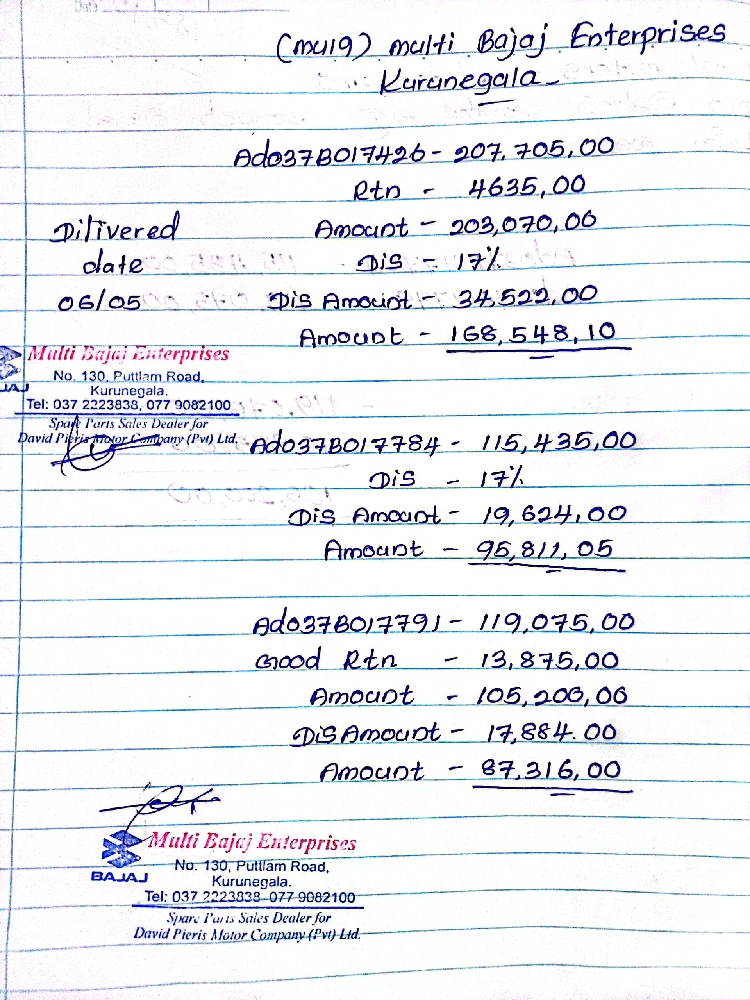 (mu19) multi Bajaj Enterprises
Kurunegala
Ad037B017426 - 207,705,00
Rtn - 4635,00
Amount - 203,070,00
Dis - 17%
Dis Amount - 34,522,00
Amount - 168,548,10
Dilivered
date
06/05
Multi Bajaj Enterprises
No. 130, Puttlam Road,
Kurunegala.
Tel: 037 2223838, 077 9082100
Spare Parts Sales Dealer for
David Pieris Motor Company (Pvt) Ltd.
Ad037B017784 - 115,435,00
Dis - 17%
Dis Amount - 19,624,00
Amount - 95,811,05
Ad037B017791 - 119,075,00
Good Rtn - 13,875,00
Amount - 105,200,00
Dis Amount - 17,884.00
Amount - 87,316,00
Multi Bajaj Enterprises
BAJAJ
No. 130, Puttlam Road,
Kurunegala.
Tel: 037 2223838 077 9082100
Spare Parts Sales Dealer for
David Pieris Motor Company (Pvt) Ltd.